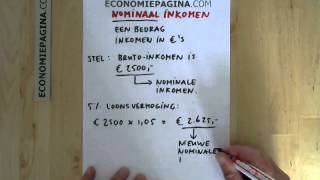 ECONOMIEPAGINA.COM
ECONOMIEPAGINA.COM
NOMINAAL INKOMEN
EEN BEDRAG
INKOMEN IN €'s
STEL: BRUTO-INKOMEN IS
€ 2500,-
NOMINALE
INKOMEN.
5% LOONSVERHOGING:
€ 2500 x 1,05 = € 2.625,-
NIEUWE
NOMINALE